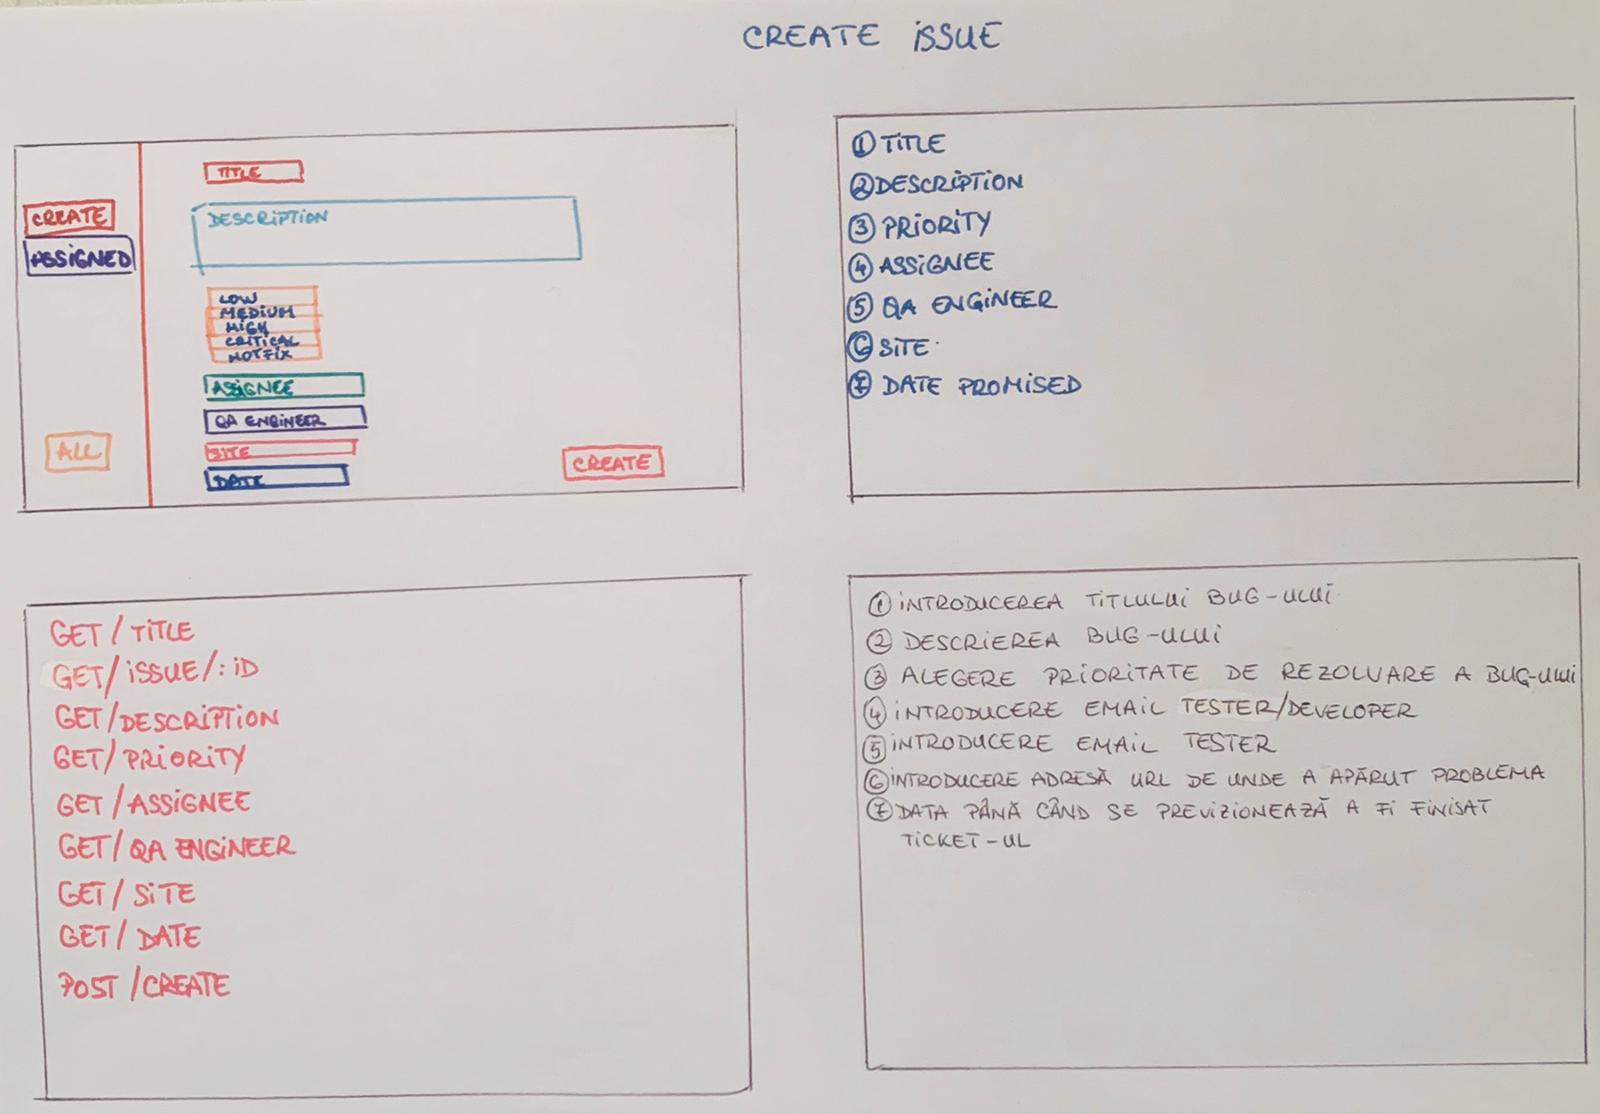 CREATE ISSUE
TITLE
DESCRIPTION
CREATE
ASSIGNED
LOW
MEDIUM
HIGH
CRITICAL
HOTFIX
ASSIGNEE
QA ENGINEER
SITE
DATE
ALL
CREATE
① TITLE
② DESCRIPTION
③ PRIORITY
④ ASSIGNEE
⑤ QA ENGINEER
⑥ SITE
⑦ DATE PROMISED
GET / TITLE
GET / ISSUE / : ID
GET / DESCRIPTION
GET / PRIORITY
GET / ASSIGNEE
GET / QA ENGINEER
GET / SITE
GET / DATE
POST / CREATE
① INTRODUCEREA TITLULUI BUG-ULUI
② DESCRIEREA BUG-ULUI
③ ALEGERE PRIORITATE DE REZOLVARE A BUG-ULUI
④ INTRODUCERE EMAIL TESTER/DEVELOPER
⑤ INTRODUCERE EMAIL TESTER
⑥ INTRODUCERE ADRESĂ URL DE UNDE A APĂRUT PROBLEMA
⑦ DATA PÂNĂ CÂND SE PREVIZIONEAZĂ A FI FINISAT
TICKET-UL